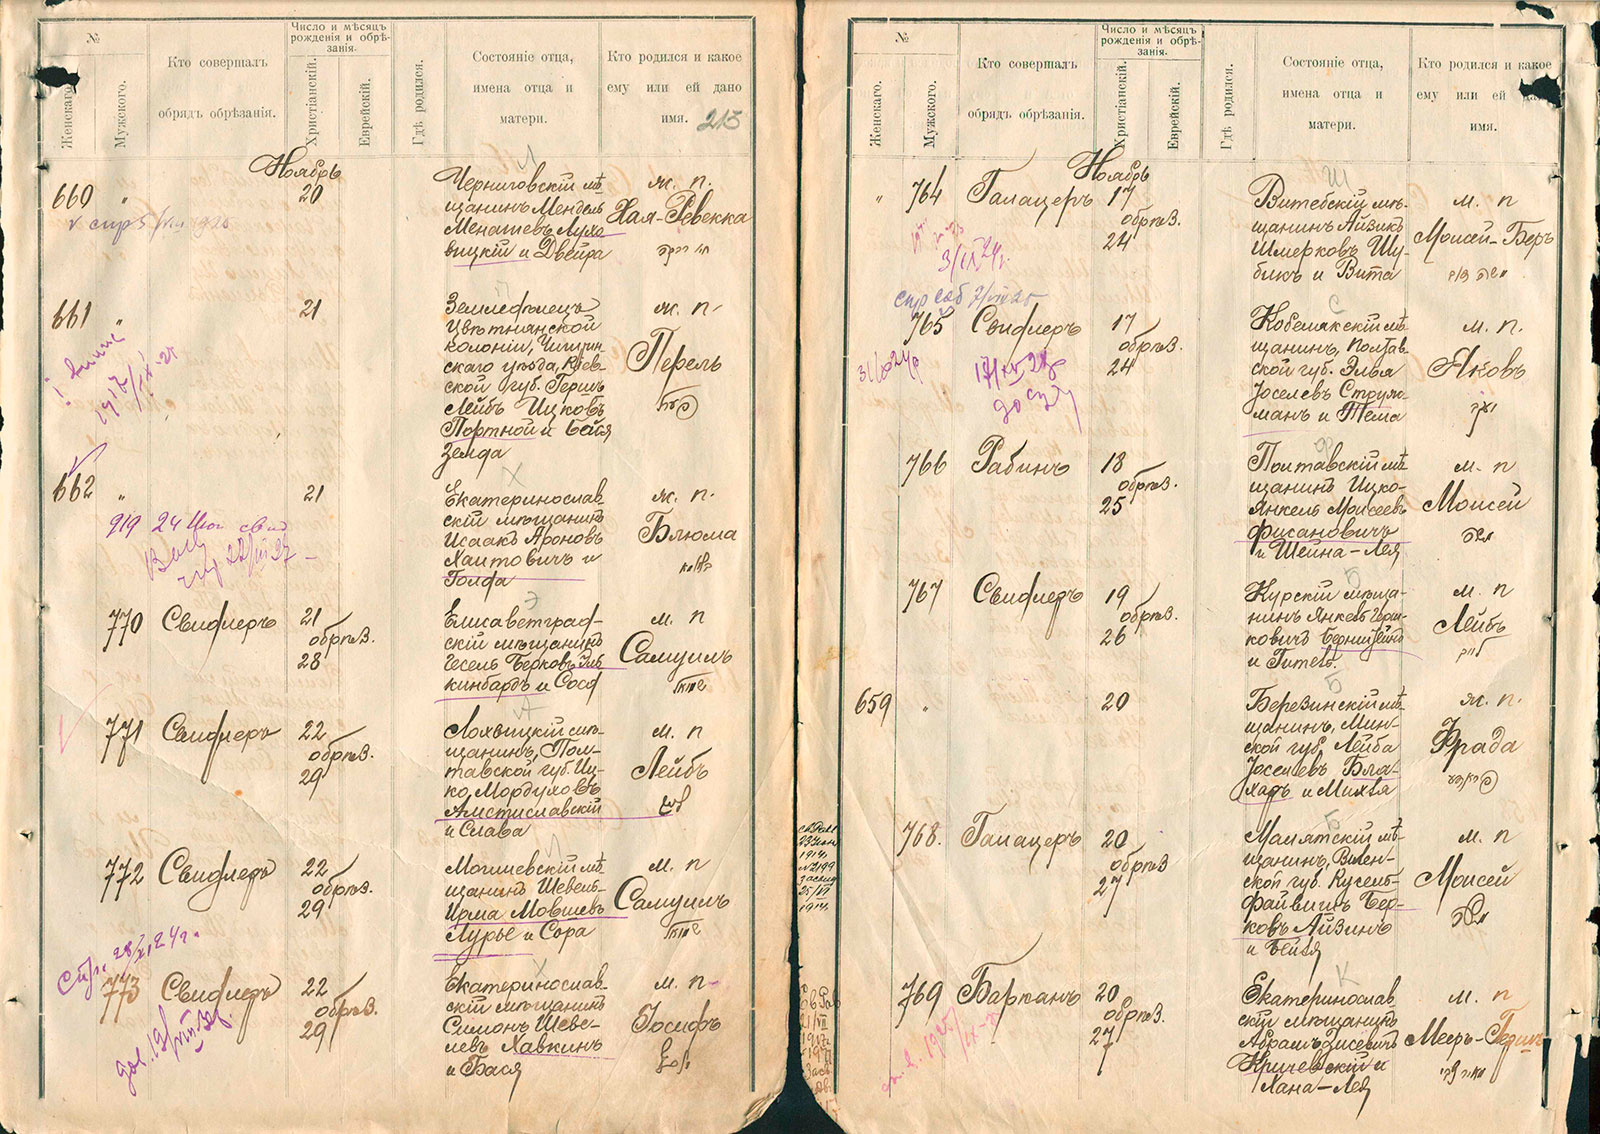 №
Женскаго.
Мужского.
Кто совершалъ
обрядъ обрѣзанія.
Число и мѣсяцъ
рожденія и обрѣ-
занія.
Христіанскій.
Еврейскій.
Гдѣ родился.
Состояніе отца,
имена отца и
матери.
Кто родился и какое
ему или ей дано
имя. 213
Ноябрь
660 " 20
Черниговскій мѣ-
щанинъ Мендель
Менашевъ Лухо
вицкій и Двейра
ж. п.
Хая-Ревекка
661 " 21
Землефѣлецъ
Цвѣтнянской
колоніи, Чигрин
скаго уѣзда, Кіев-
ской губ. Гершъ
Лейбъ Ицковъ
Портной и Бейля
Земда
ж. п.
Перель
פערל
662 " 21
919 24
Екатеринослав-
скій мѣщанинъ
Исаакъ Ароновъ
Хаитовичъ и
Голфа
ж. п.
Блюма
770 Свифлеръ 21
обрѣз.
28
Елисаветград-
скій мѣщанинъ
Іесель Берковъ
кинбардъ и Сося
м. п
Самуилъ
771 Свифлеръ 22
обрѣз.
29
Лохвицкій мѣ-
щанинъ, Пол-
тавской губ. Иц-
ко Мордуховъ
Амстиславскій
и Слава
м. п
Лейбъ
772 Свифлеръ 22
обрѣз.
29
Могилевскій мѣ-
щанинъ Шевель-
Ирма Мовшевъ
Лурье и Сора
м. п
Самуилъ
773 Свифлеръ 22
обрѣз.
29
Екатеринослав-
скій мѣщанинъ
Симонъ Шеве-
левъ Хавкинъ
и Бася
м. п.
Іосифъ
№
Женскаго.
Мужского.
Кто совершалъ
обрядъ обрѣзанія.
Число и мѣсяцъ
рожденія и обрѣ-
занія.
Христіанскій.
Еврейскій.
Гдѣ родился.
Состояніе отца,
имена отца и
матери.
Кто родился и какое
ему или ей дано
имя.
Ноябрь
Ш
" 764 Галацеръ 17
обрѣз.
24
Витебскій мѣ-
щанинъ Айзикъ
Шмерковъ Шу-
бикъ и Вита
м. п
Моисей-Беръ
משה בער
С
765 Свифлеръ 17
обрѣз.
24
Кобелякскій мѣ-
щанинъ, Полтав-
ской губ. Элья
Іоселевъ Струл-
манъ и Тема
м. п.
Яковъ
יעקב
Ф
766 Рабинъ 18
обрѣз.
25
Полтавскій мѣ-
щанинъ Ицко-
Янкель Моисеевъ
Фисановичъ
и Шейна-Лея
м. п
Моисей
משה
Б
767 Свифлеръ 19
обрѣз.
26
Курскій мѣща-
нинъ Янкель Герш-
ковичъ Бернштейнъ
и Гитель.
м. п
Лейбъ
לייב
Б
659 " 20
Березинскій мѣ-
щанинъ, Мин-
ской губ, Лейба
Іоселевъ Бла-
харъ и Михля
ж. п.
Фрада
פראדע
Б
768. Галацеръ 20
обрѣз.
27
Малятскій мѣ-
щанинъ, Вилен-
ской губ. Кусель-
Файвишъ Бер-
ковъ Айзинъ
и Бейля
м. п
Моисей
משה
К
769 Барканъ 20
обрѣз.
27
Екатеринослав-
скій мѣщанинъ
Абрамъ Зисевичъ
Кричевскій и
Хана-Лея
м. п
Мееръ-